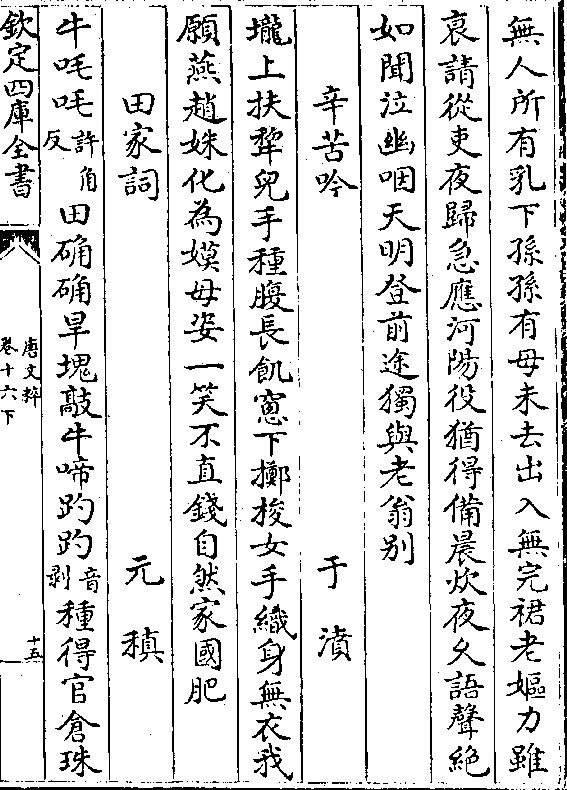 無人所有乳下孫孫有母未去出入無完裙老嫗力雖
衰請從吏夜歸急應河陽役猶得備晨炊夜久語聲絶
如聞泣幽咽天明登前途獨與老翁别
辛苦吟 于濆
壠上扶犂兒手種腹長飢窻下擲梭女手織身無衣我
願燕趙姝化為嫫母姿一笑不直錢自然家國肥
田家詞 元稹
牛吒吒許角反田确确旱塊敲牛啼趵趵音剥種得官倉珠
欽定四庫全書
唐文粹
卷十六下
十五